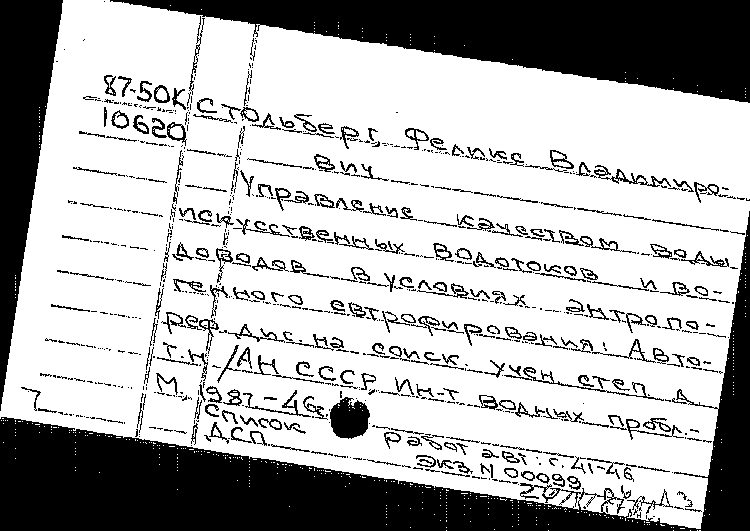 87-50К Стольберг, Феликс Владимиро-
10620 вич
Управление качеством воды
искусственных водотоков и во-
доводов в условиях антропо-
генного евтрофирования: Авто-
реф. дис. на соиск. учен. степ. д.
т.н. /АН СССР, Ин-т водных пробл.-
М., 1987.-46с.
Список работ авт.: с. 41-46
ДСП Экз. N 00099